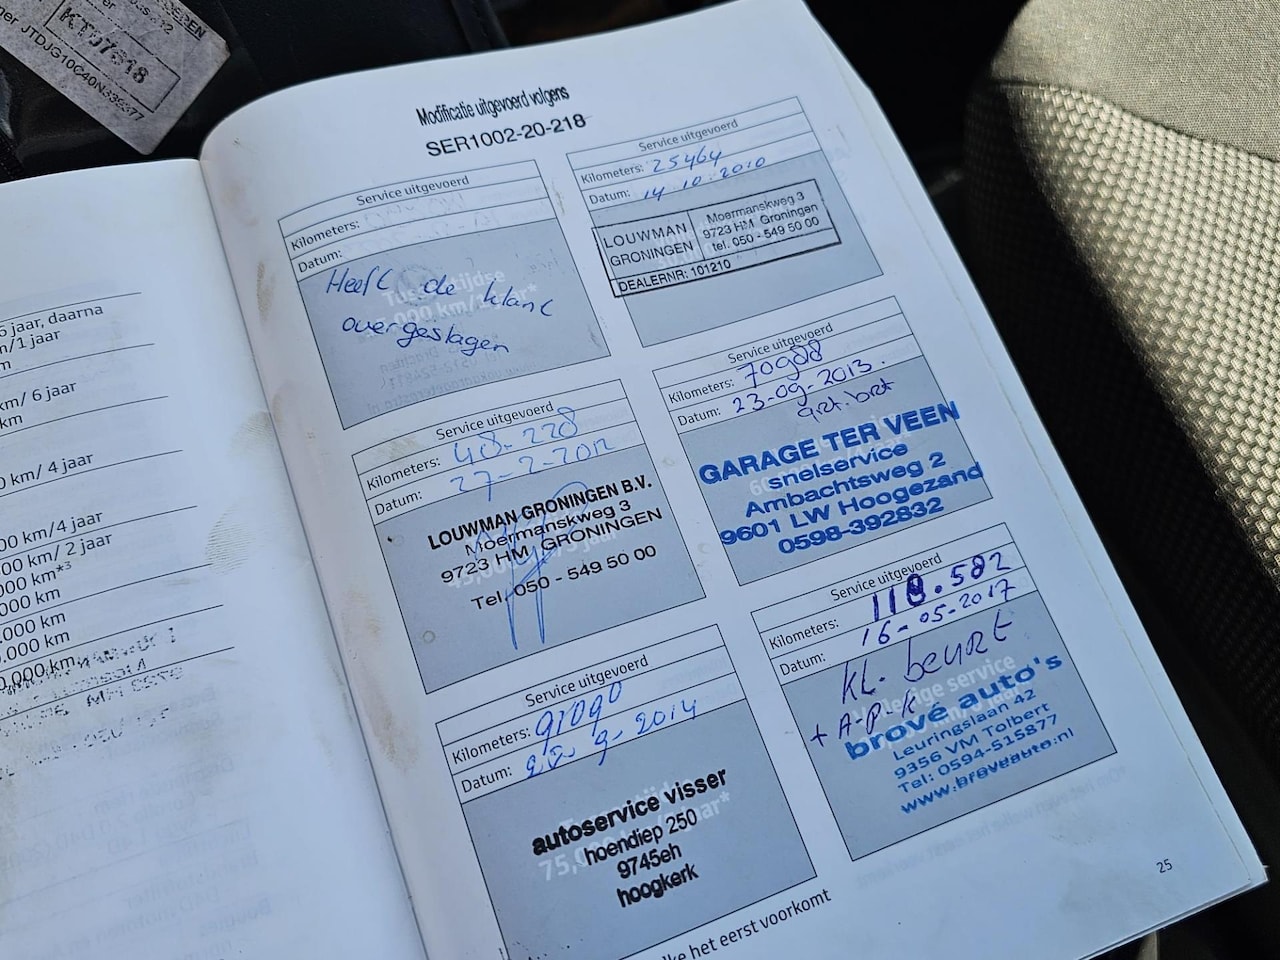 KT57818
JTDJG10C40N339377
5 jaar, daarna
m/1 jaar
m
km/ 6 jaar
km
0 km/ 4 jaar
000 km/4 jaar
km/ 2 jaar
000 km*³
.000 km
.000 km
Modificatie uitgevoerd volgens
SER1002-20-218
Service uitgevoerd
Kilometers:
Datum:
Heeft de klant
overgeslagen
Service uitgevoerd
Kilometers: 25464
Datum: 14 10 2010
LOUWMAN
GRONINGEN
Moermanskweg 3
9723 HM Groningen
tel. 050 - 549 50 00
DEALERNR: 101210
Service uitgevoerd
Kilometers: 48-228
Datum: 27-2-2012
LOUWMAN GRONINGEN B.V.
Moermanskweg 3
9723 HM GRONINGEN
Tel. 050 - 549 50 00
Service uitgevoerd
Kilometers: 70988
Datum: 23-09-2013.
GARAGE TER VEEN
snelservice
Ambachtsweg 2
9601 LW Hoogezand
0598-392832
Service uitgevoerd
Kilometers: 91090
Datum: 22-9-2014
autoservice visser
75,000 km
hoendiep 250
9745eh
hoogkerk
Service uitgevoerd
Kilometers: 118.582
Datum: 16-05-2017
KL. beurt
+ A-P-K
brové auto's
Leuringslaan 42
9356 VM Tolbert
Tel: 0594-515877
www.broveauto.nl
lke het eerst voorkomt
25